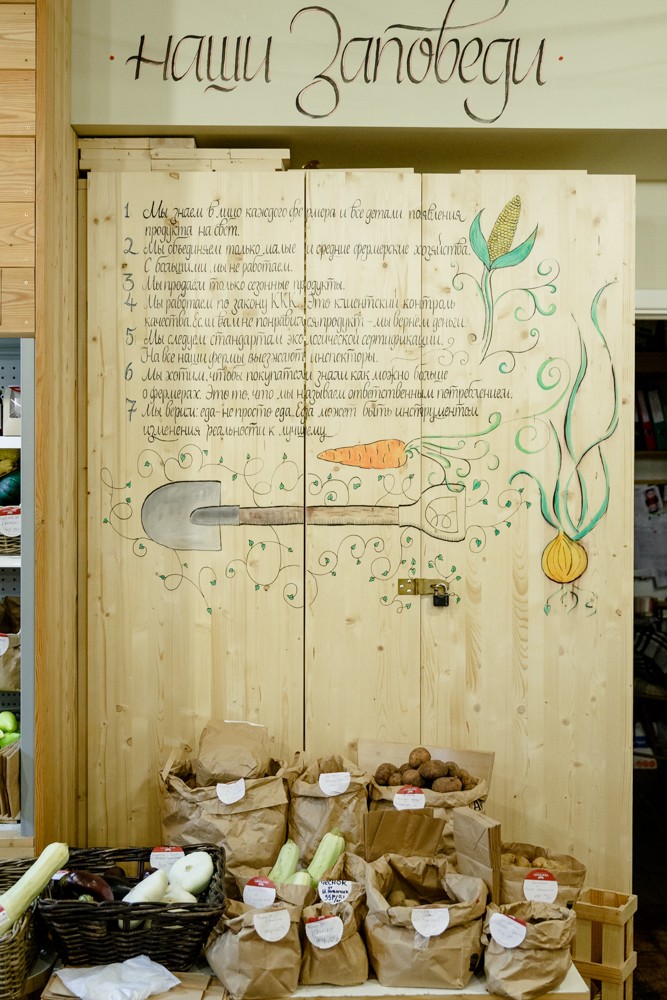 наши Заповеди
1 Мы знаем в лицо каждого фермера и все детали появления
продукта на свет.
2 Мы объединяем только малые и средние фермерские хозяйства.
С большими мы не работаем.
3 Мы продаём только сезонные продукты.
4 Мы работаем по закону ККК. Это клиентский контроль
качества. Если вам не понравился продукт - мы вернём деньги.
5 Мы следуем стандартам экологической сертификации.
На все наши фермы выезжают инспекторы.
6 Мы хотим, чтобы покупатели знали как можно больше
о фермерах. Это то, что мы называем ответственным потреблением.
7 Мы верим: еда - не просто еда. Еда может быть инструментом
изменения реальности к лучшему.
ЧЕСНОК